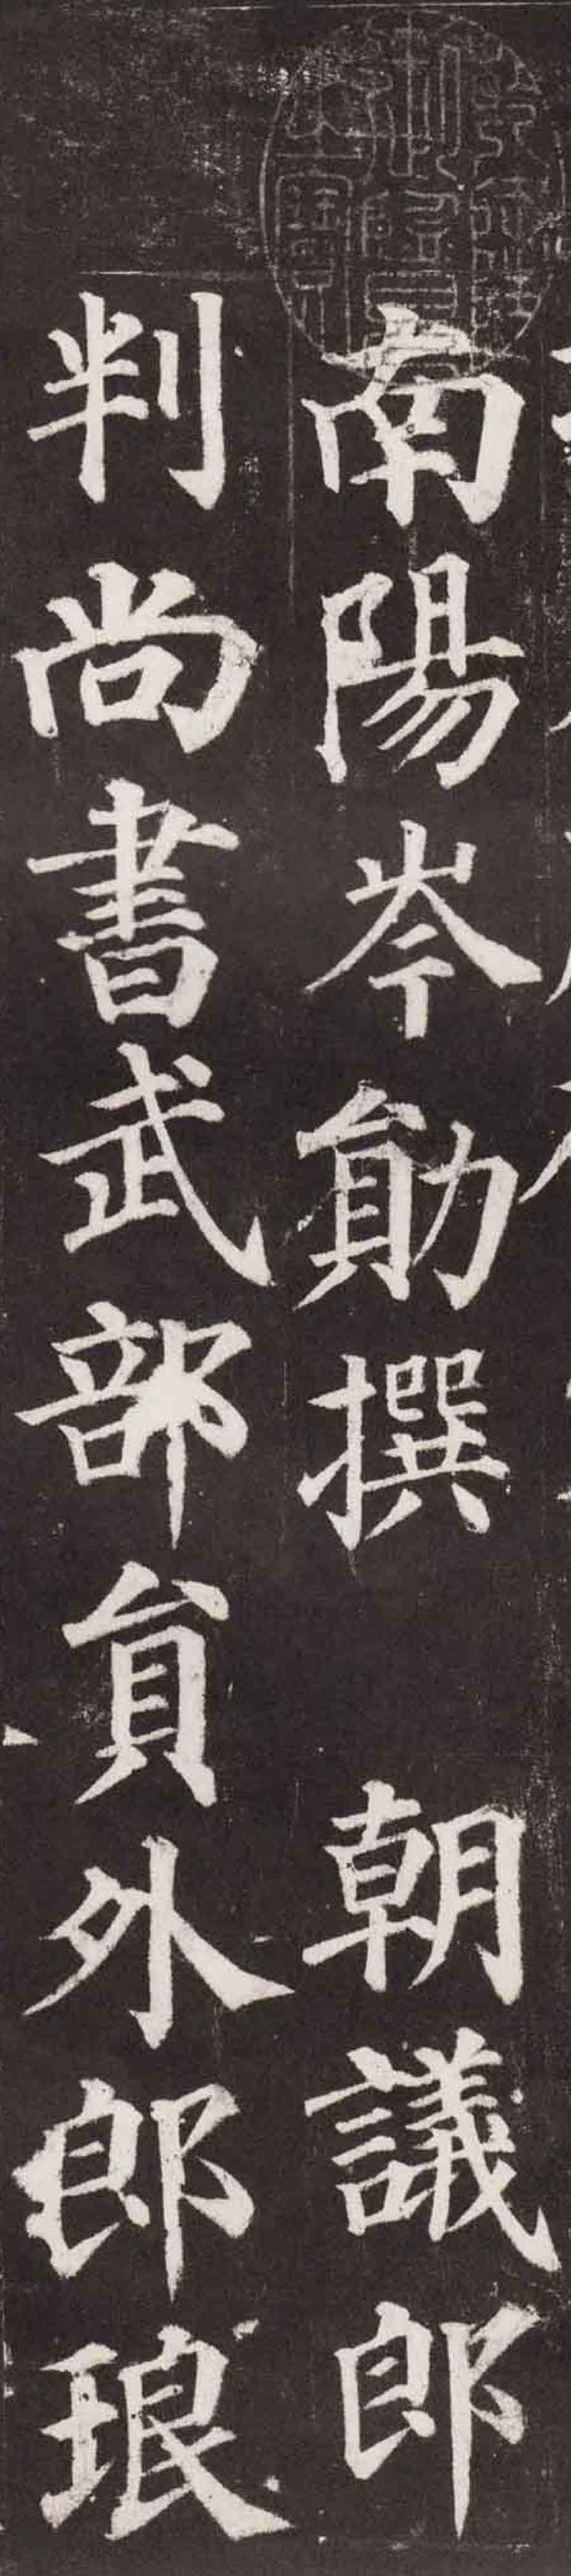 南陽岑勛撰 朝議郎
判尚書武部員外郎琅